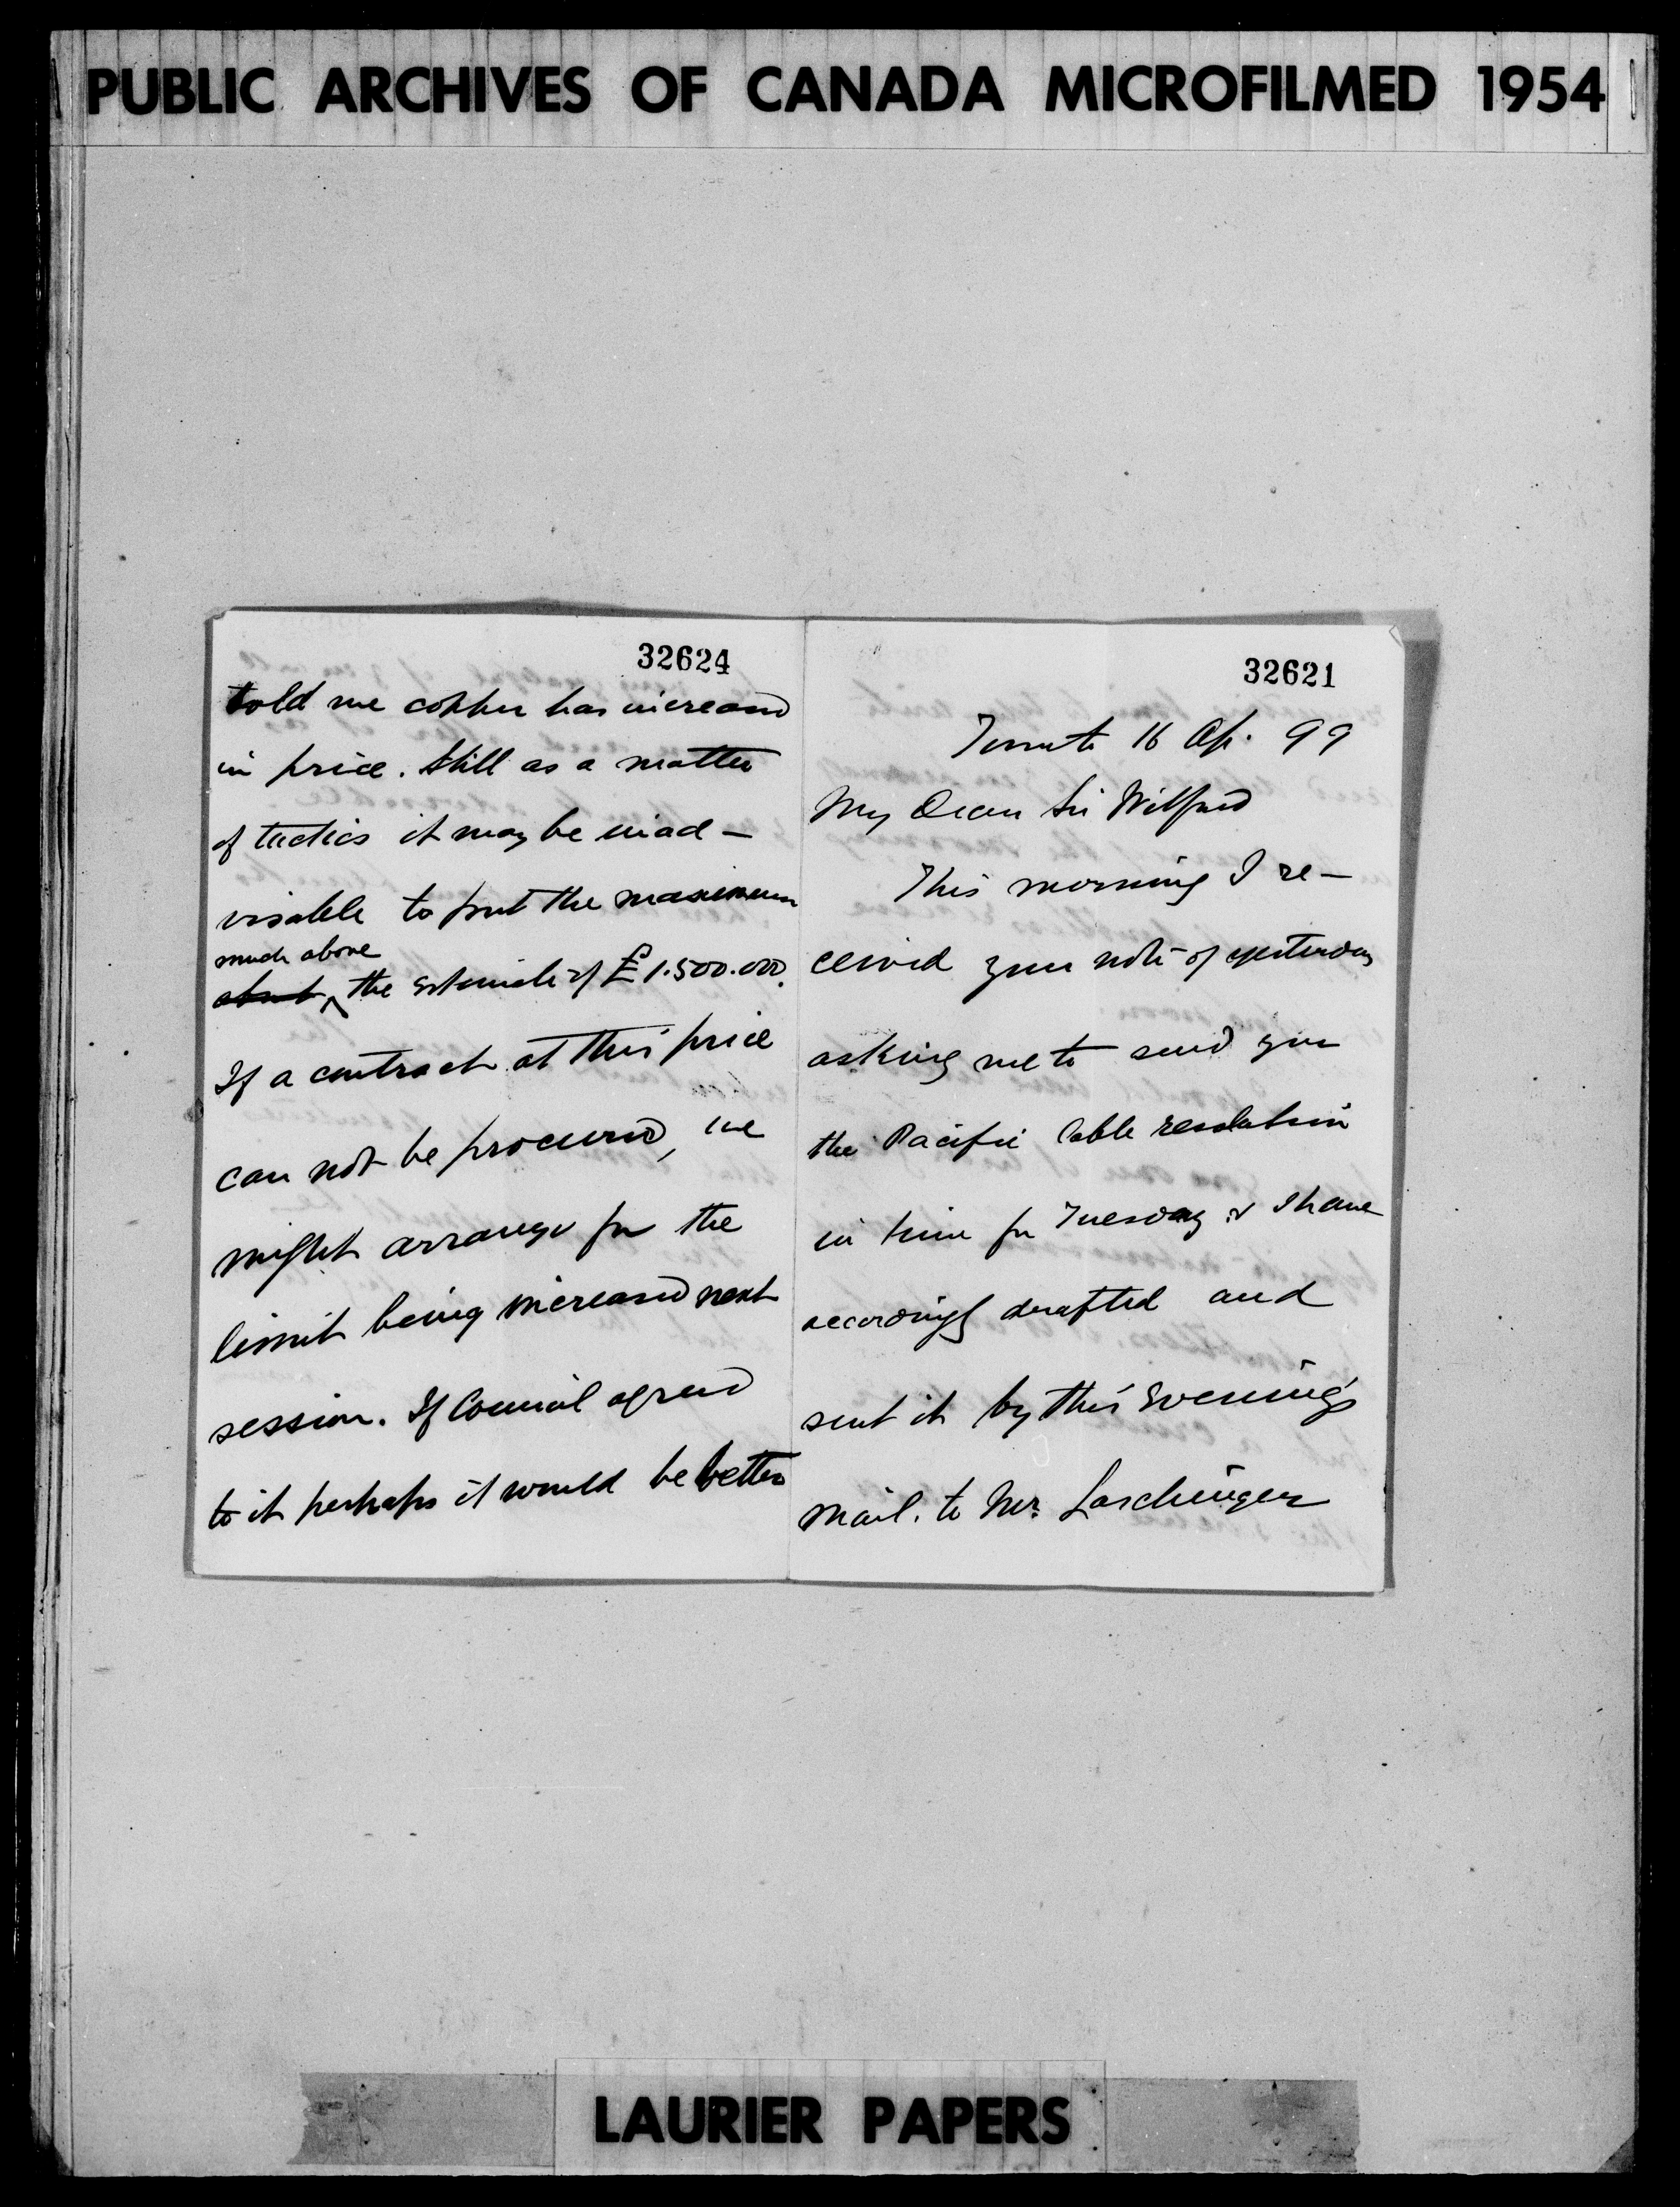 PUBLIC ARCHIVES OF CANADA MICROFILMED 1954
32624
told me copper has increased
in price. Still as a matter
of tactics it may be inad-
visable to put the maximum
much above
about the estimate of £1.500.000.
If a contract at this price
can not be procured, we
might arrange for the
limit being increased next
session. If Council agreed
to it perhaps it would be better
32621
Toronto 16 Ap. 99
My Dear Sir Wilfrid
This morning I re-
ceived your note of yesterday
asking me to send you
the Pacific Cable resolution
in time for Tuesday & I have
accordingly drafted and
sent it by this evening's
mail. to Mr. Laschinger
LAURIER PAPERS